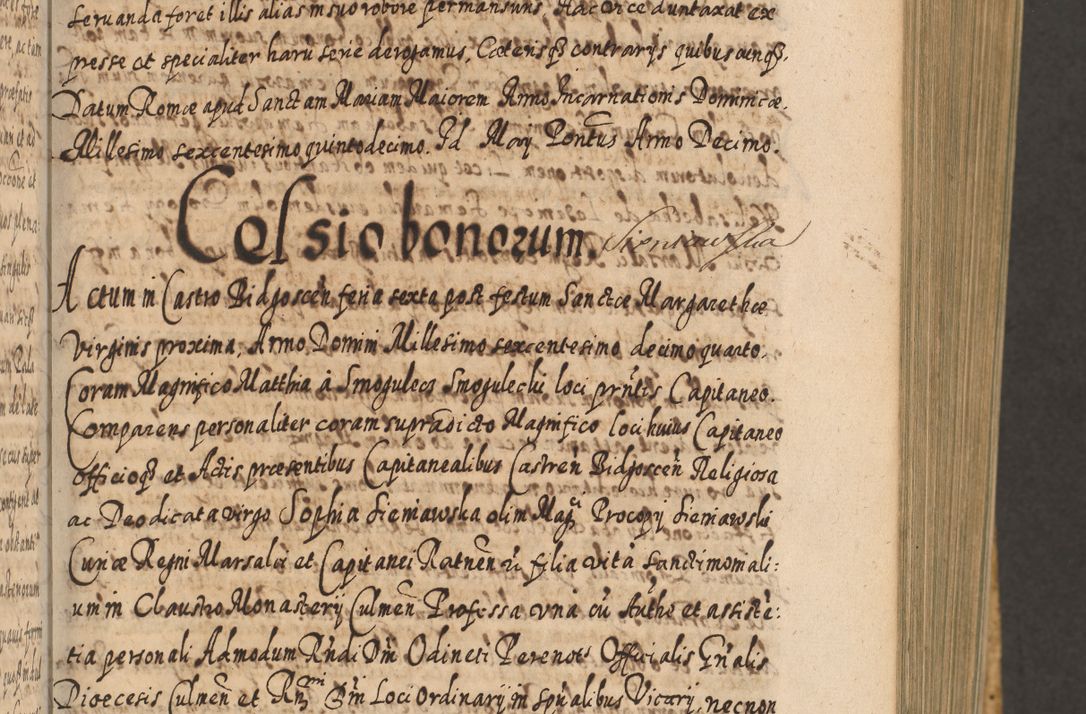 seruanda foret illis alias in suo robore permansuris hac vice duntaxat ex
presse et specialiter harũ serie derogamus, Cœterisq3 contrarijs quibuscunq3.
Datum Romœ apud Sanctam Mariam Maiorem Anno Incarnationis Dominicœ.
Millesimo sexcentesimo quintodecimo. Id Maij Pontũs Anno Decimo.
Celsio bonorum. Sieniawska
Actum in Castro Bidgoscen̄ feria sexta post festum Sanctœ Margarethœ
Virginis proxima, Anno Domini Millesimo sexcentesimo decimo quarto.
Coram Magnifico Matthia à Smogulecz Smogulecki loci prn̄tis Capitaneo.
Comparens personaliter coram supradicto Magnifico loci huius Capitaneo
officioq3 et Actis prœsentibus Capitanealibus Castren̄ Bidgoscen̄ Religiosa
ac Deo dicata virgo Sophia Sieniawska olim Mag:ci Procopij Sieniawski
Curiœ Regni Marsalci et Capitanei Ratnen̄ &c filia vità sanctimoniali:
um in Claustro Monasterij Culmen̄ Professa vnà cũ Authe et assistẽ:
tia personali Admodum Rn̄di Dn̄i Odineti Perenots Officialis Gn̄alis
Diœcesis Culmen̄ et Rn̄mi Dn̄i Loci Ordinarij in spũalibus Vicarij, necnon